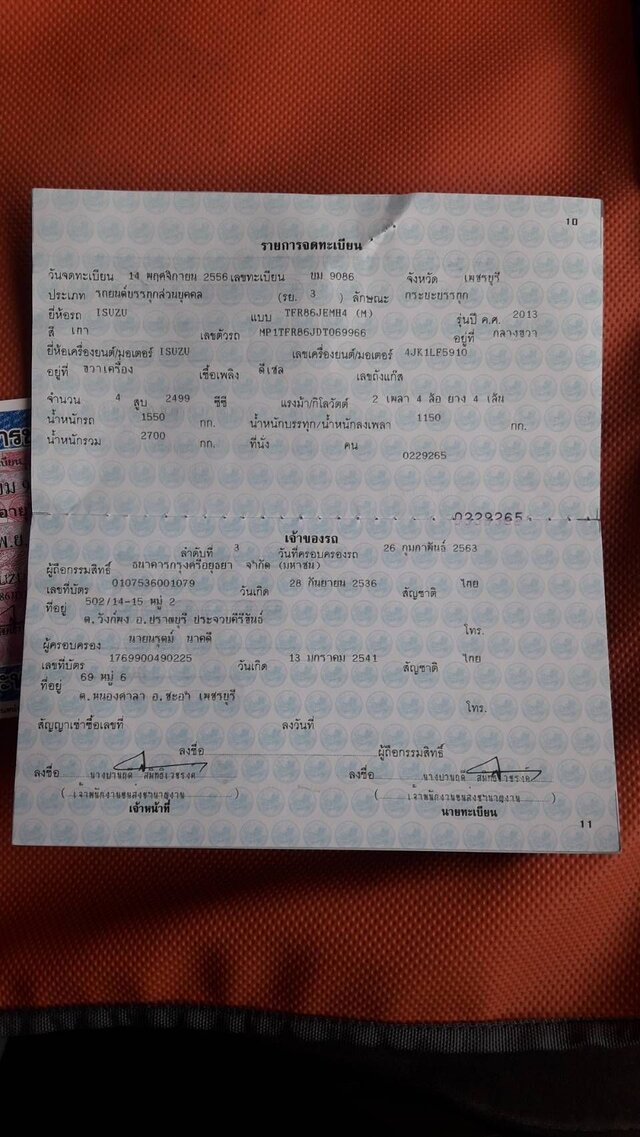 10
รายการจดทะเบียน
วันจดทะเบียน 14 พฤศจิกายน 2556 เลขทะเบียน ยม 9086 จังหวัด เพชรบุรี
ประเภท รถยนต์บรรทุกส่วนบุคคล (รย. 3 ) ลักษณะ กระบะบรรทุก
ยี่ห้อรถ ISUZU แบบ TFR86JEMH4 (M) รุ่นปี ค.ศ. 2013
สี เทา เลขตัวรถ MP1TFR86JDT069966 อยู่ที่ กลางขวา
ยี่ห้อเครื่องยนต์/มอเตอร์ ISUZU เลขเครื่องยนต์/มอเตอร์ 4JK1LF5910
อยู่ที่ ขวาเครื่อง เชื้อเพลิง ดีเซล เลขถังแก๊ส
จำนวน 4 สูบ 2499 ซีซี แรงม้า/กิโลวัตต์ 2 เพลา 4 ล้อ ยาง 4 เส้น
น้ำหนักรถ 1550 กก. น้ำหนักบรรทุก/น้ำหนักลงเพลา 1150 กก.
น้ำหนักรวม 2700 กก. ที่นั่ง คน
0229265
0229265
เจ้าของรถ
ลำดับที่ 3 วันที่ครอบครองรถ 26 กุมภาพันธ์ 2563
ผู้ถือกรรมสิทธิ์ ธนาคารกรุงศรีอยุธยา จำกัด (มหาชน)
เลขที่บัตร 0107536001079 วันเกิด 28 กันยายน 2536 สัญชาติ ไทย
ที่อยู่ 502/14-15 หมู่ 2
ต.วังก์พง อ.ปราณบุรี ประจวบคีรีขันธ์
โทร.
ผู้ครอบครอง นายนรุตม์ นาคดี
เลขที่บัตร 1769900490225 วันเกิด 13 มกราคม 2541 สัญชาติ ไทย
ที่อยู่ 69 หมู่ 6
ต.หนองศาลา อ.ชะอำ เพชรบุรี
โทร.
สัญญาเช่าซื้อเลขที่ ลงวันที่
ลงชื่อ ผู้ถือกรรมสิทธิ์
ลงชื่อ ลงชื่อ
(เจ้าพนักงานขนส่งชำนาญงาน) (เจ้าพนักงานขนส่งชำนาญงาน)
เจ้าหน้าที่ นายทะเบียน
11